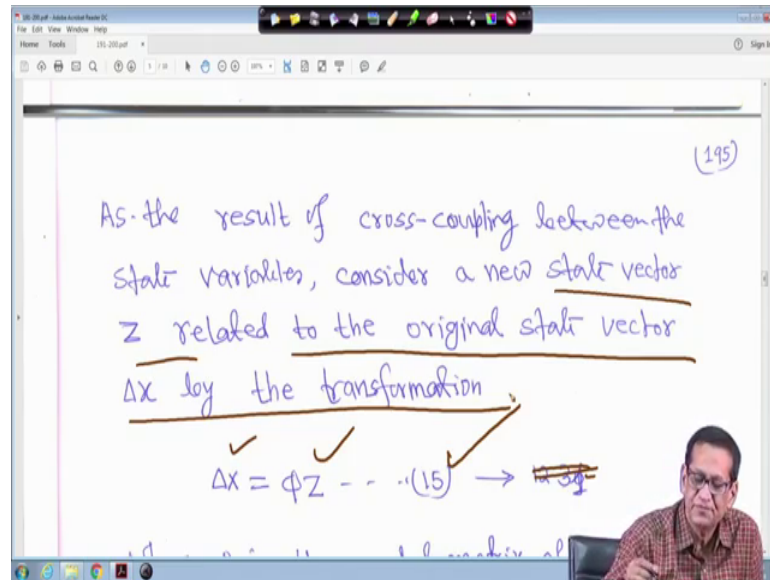 191-200.pdf - Adobe Acrobat Reader DC
File Edit View Window Help
Home Tools 191-200.pdf × Sign In
(195)
As the result of cross-coupling between the
state variables, consider a new state vector
Z related to the original state vector
Δx by the transformation
Δx = ϕZ - - - ·(15) →